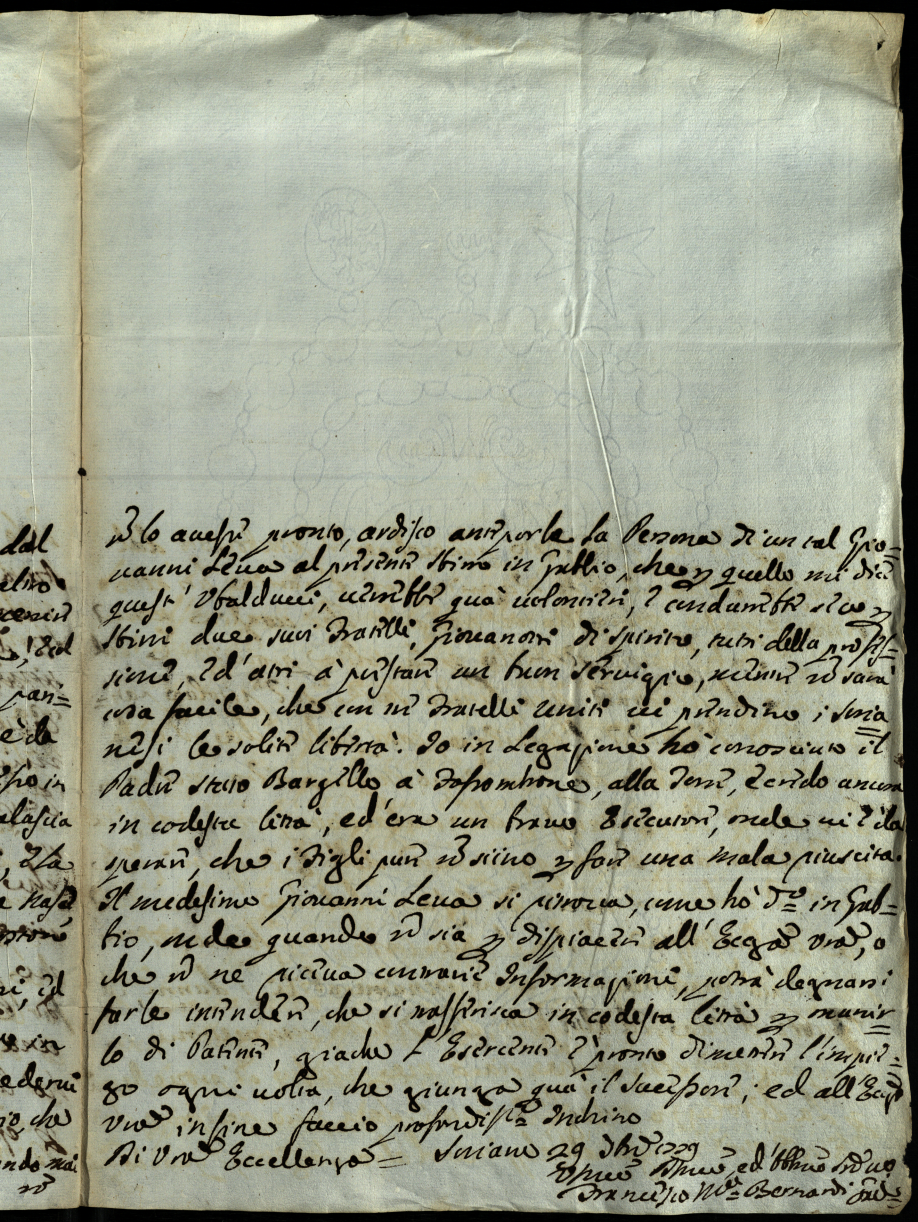 dal
altro
ñ lo avesse pronto, ardisco anteporle la Persona di un tal Gio=
vanni Leva al presente sbirro in Gubbio, che p quello mi dice
quest' Ubalducci, verrebbe quà volontieri, e condurrebbe seco p
sbirri due suoi Fratelli, Giovanotti di spirito, tutti della profes=
sione, ed' atti à prestare un buon servigio, mentre ñ sarà
cosa facile, che con tre Fratelli uniti vi prendino i Soria
nesi le solite libertà. Io in Legazione hò conosciuto il
Padre stato Bargello à Fossombrone, alla Terra, e credo ancora
in codesta Città, ed'era un bravo Esecutore, onde vi è da
sperare, che i Figli pure ñ siino p fare una mala riuscita.
Il medesimo Giovanni Leva si ritrova, come hò dº in Gub=
bio, onde quando ñ sia p dispiacere all' Eccza Vra, o
che ñ ne riceva contrarie Informazioni, potrà degnarsi
farle intendere, che si trasferisca in codesta Città p munir
lo di Patente, giache l'Esercente è pronto dimettere l'impie=
go ogni volta, che giunga quà il Successore; ed all'Eccza
Vra infine faccio profondisma Inchino
Di Vra Eccellenza = Soriano 29 1779
Francesco Ma Bernardi